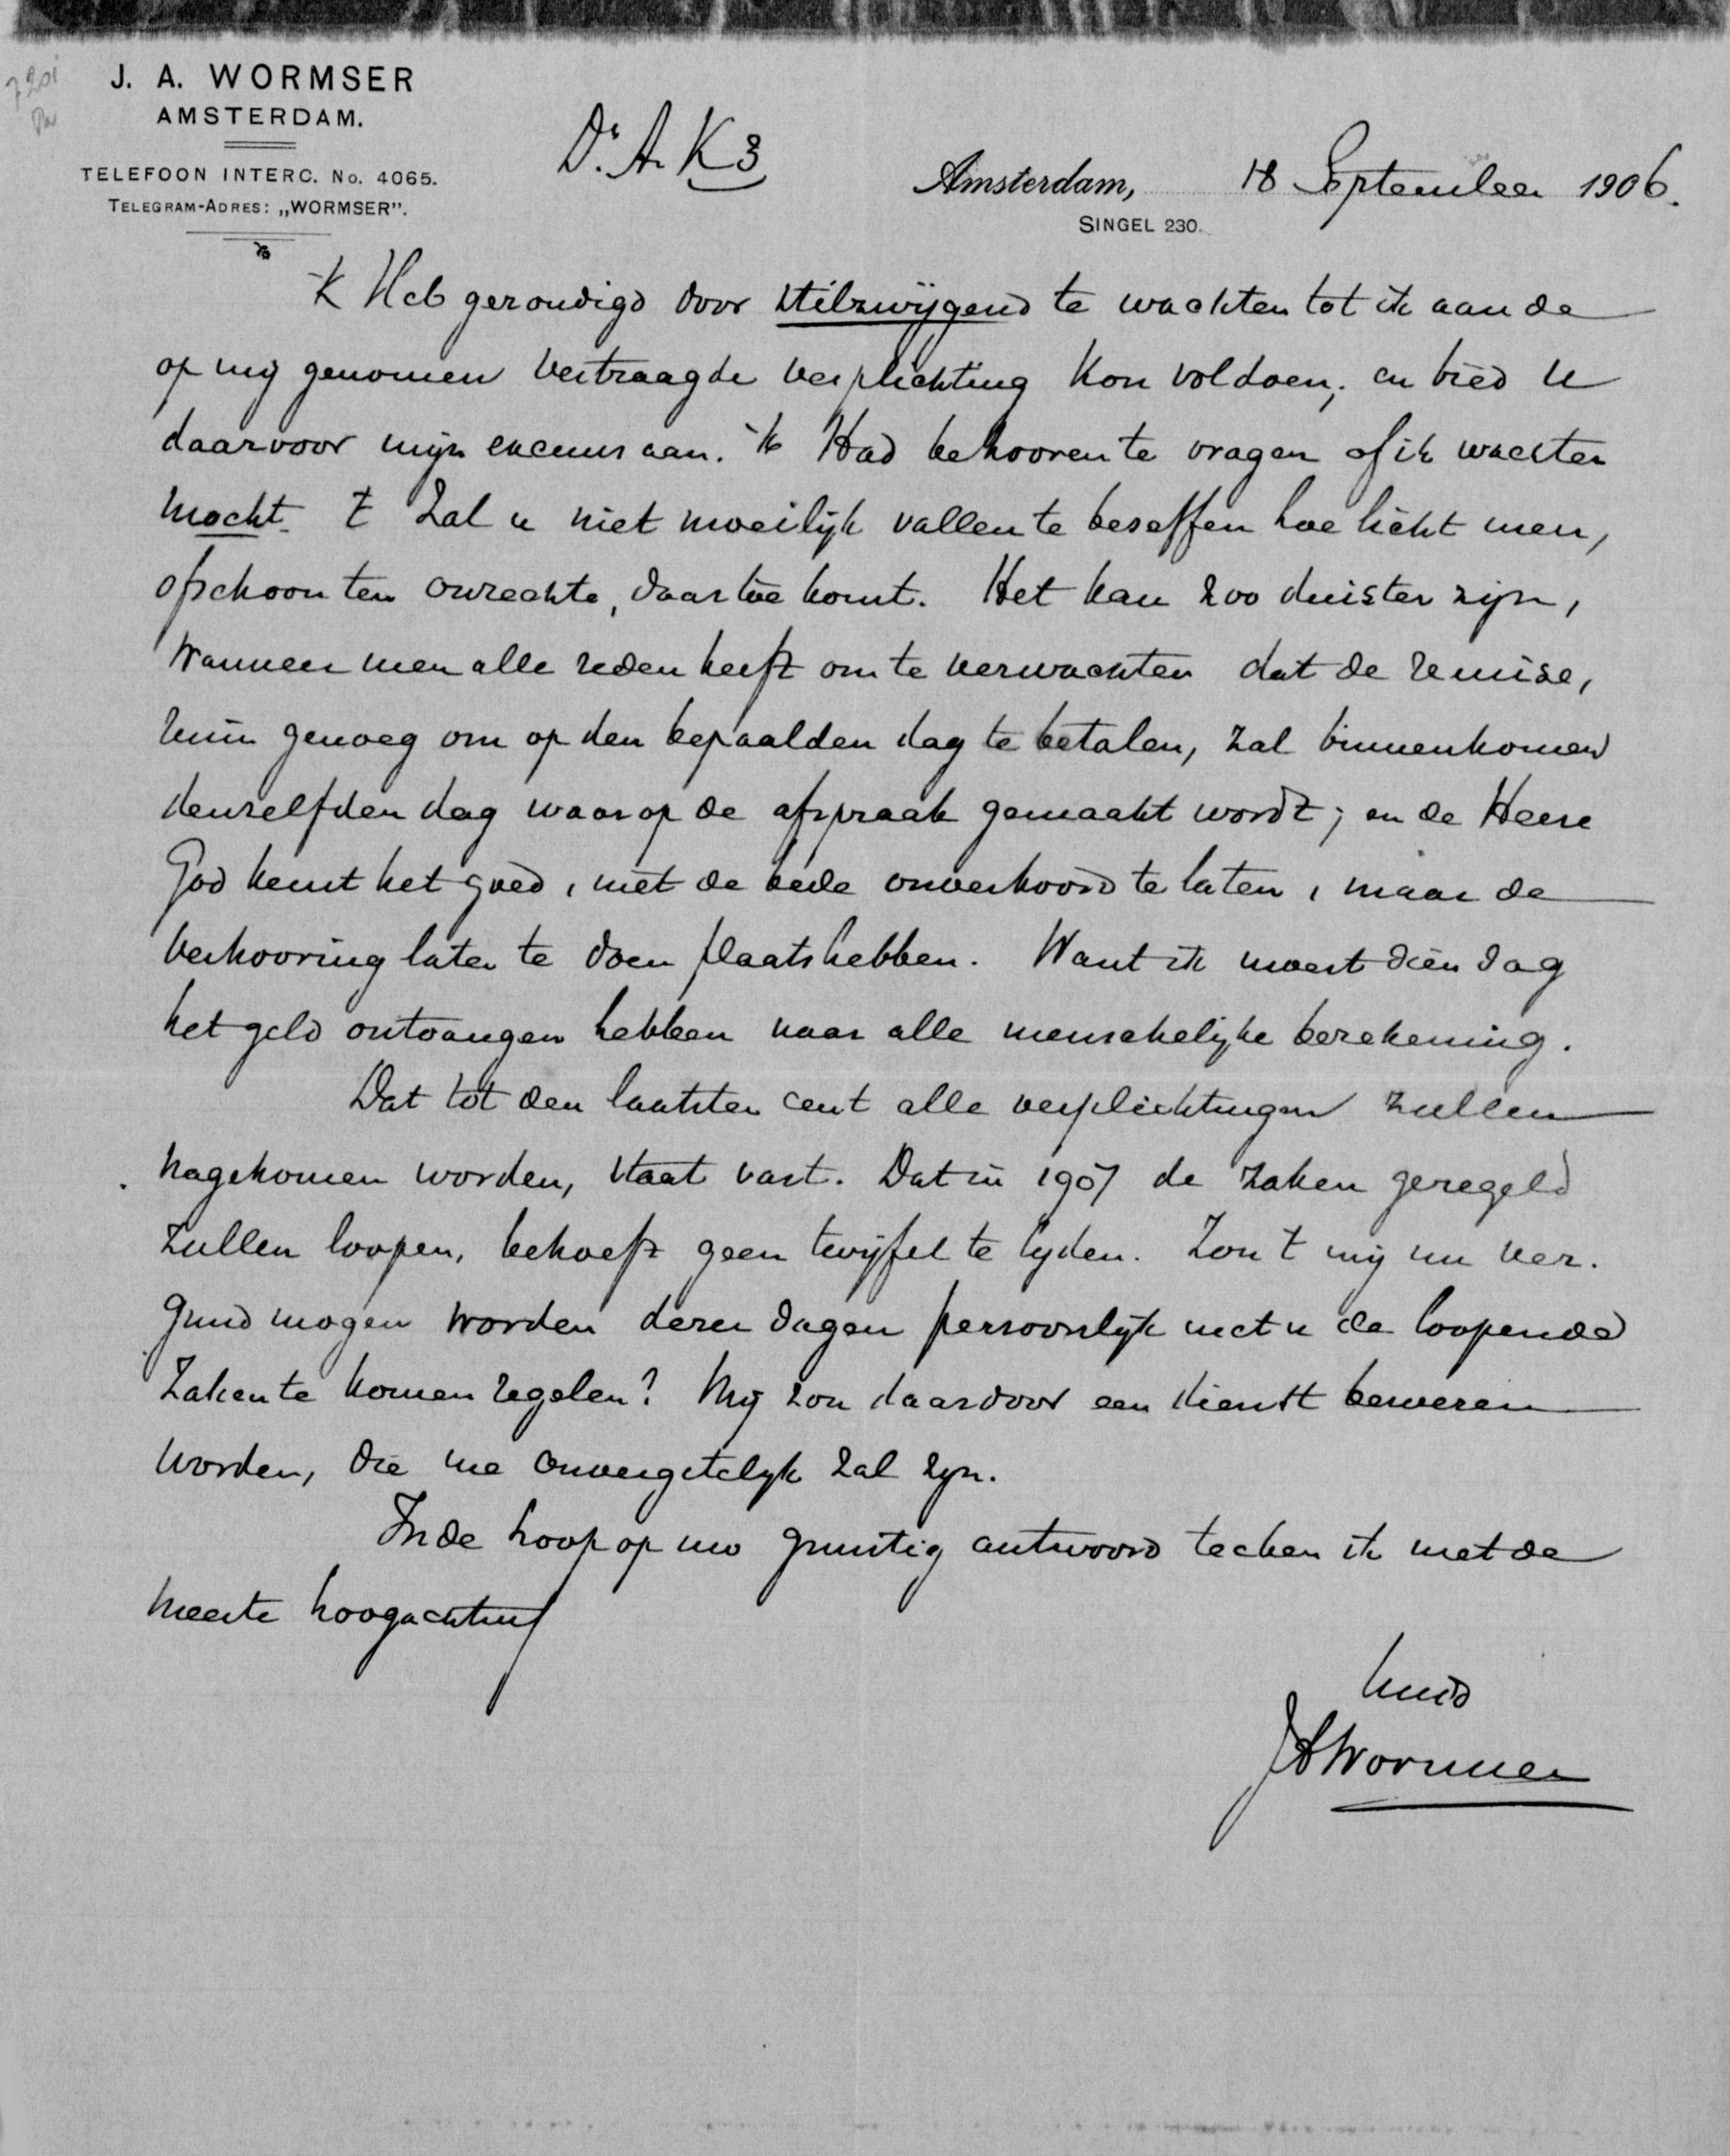 J. A. WORMSER
AMSTERDAM.
TELEFOON INTERC. No. 4065.
TELEGRAM-ADRES: „WORMSER”.
Dr. A. K
Amsterdam, 18 September 1906.
SINGEL 230.
'k Heb gezondigd door stilzwijgend te wachten tot ik aan de
op mij genomen vertraagde verplichting kon voldoen; en bied U
daarvoor mijn excuus aan. 'k Had behooren te vragen of ik wachten
mocht. 't Zal u niet moeilijk vallen te beseffen hoe licht men,
ofschoon ten onrechte, daartoe komt. Het kan zoo duister zijn,
wanneer men alle reden heeft om te verwachten dat de remise,
ruim genoeg om op den bepaalden dag te betalen, zal binnenkomen
denzelfden dag waarop de afspraak gemaakt wordt; en de Heere
God keurt het goed, niet de bede onverhoord te laten, maar de
verhooring later te doen plaatshebben. Want ik moest dien dag
het geld ontvangen hebben naar alle menschelijke berekening.
Dat tot den laatsten cent alle verplichtingen zullen
nagekomen worden, staat vast. Dat in 1907 de zaken geregeld
zullen loopen, behoeft geen twijfel te lijden. Zou 't mij nu ver-
gund mogen worden dezer dagen persoonlijk met u de loopende
zaken te komen regelen? Mij zou daardoor een dienst bewezen
worden, die me onvergetelijk zal zijn.
In de hoop op uw gunstig antwoord teeken ik met de
meeste hoogachting
Uwd
JAWormser